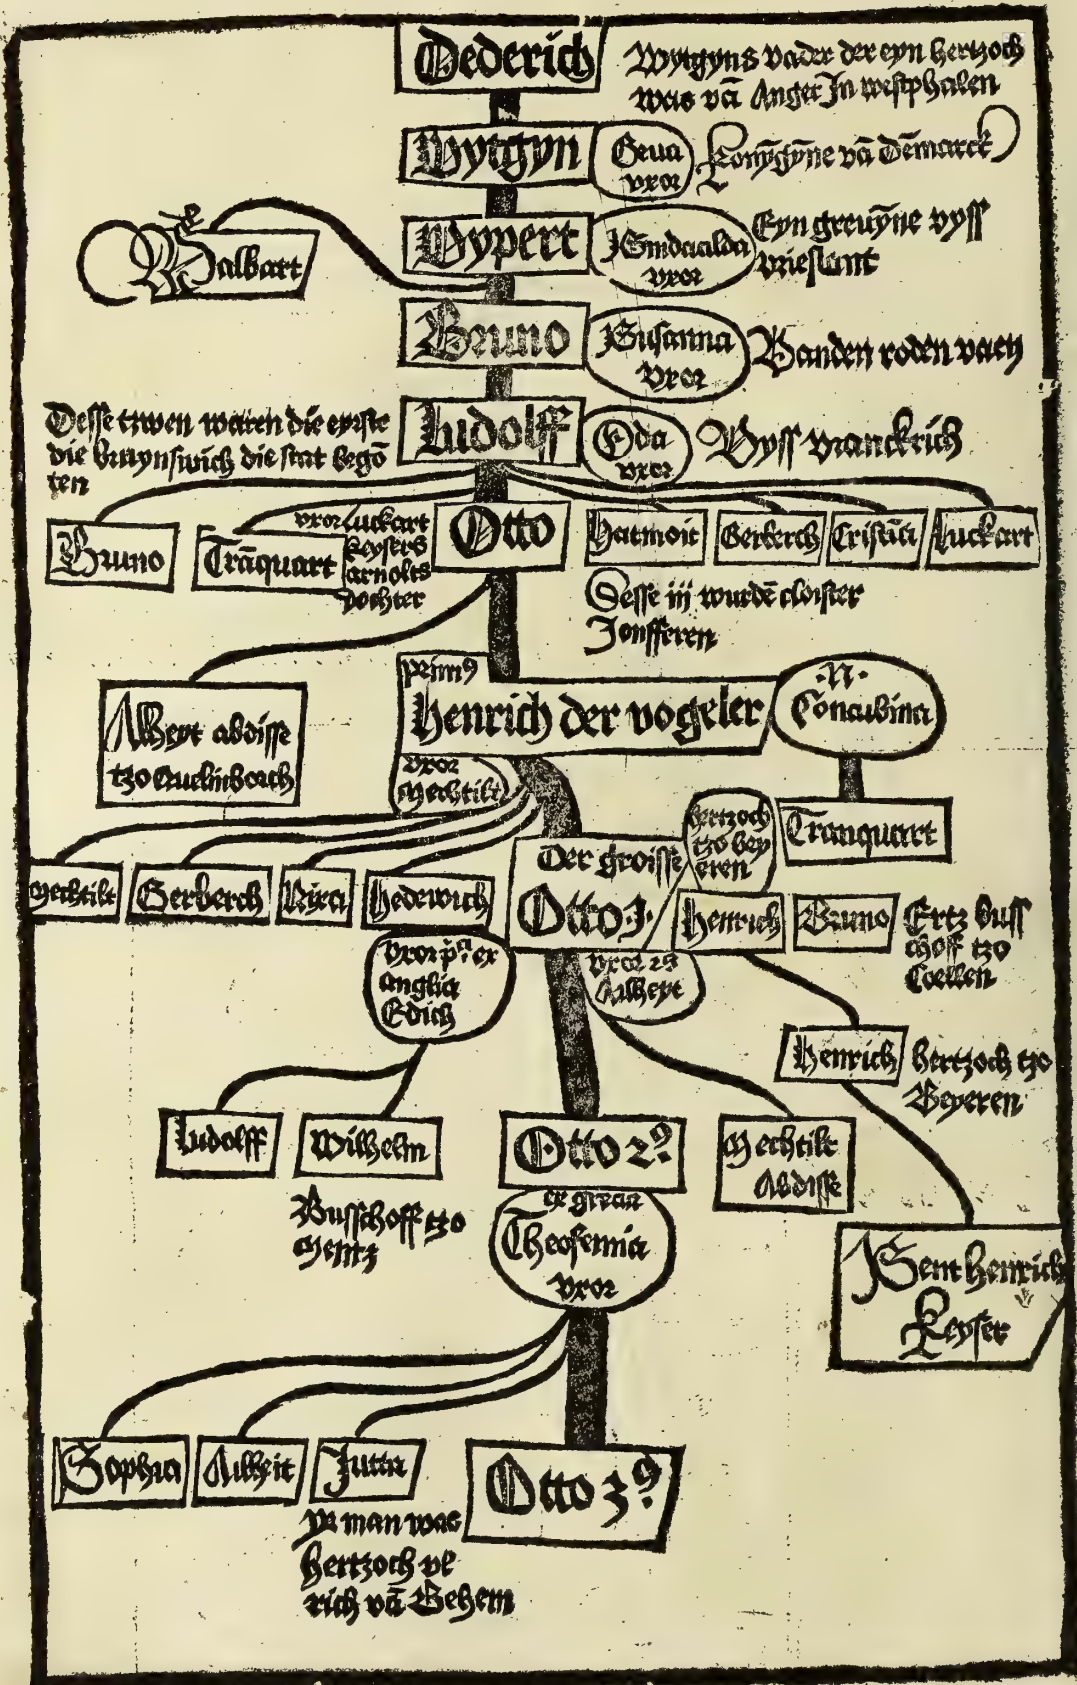 Dederich
Wytgyns vader der eyn hertzoch
was vā Anger Jn westphalen
Wytgyn
Geua
vxor
konȳgȳne vā Dēmarck
Walbart
Wypert
vxor
Eyn greuȳne vyss
vrieslant
Bruno
Susanna
vxor
Vanden roden vaen
Desse tzwen waren die eyrste
die bruynswich die stat begō
ten
Ludolff
Oda
vxor
Vyss vranckrich
Bruno
Trāquart
vxor Luckart
keysers
arnolts
dochter
Otto
Hatmoit
Gerberch
Cristīa
Luckart
Desse iij wurdē cloister
Jonfferen
Alheyt abdisse
tzo Quelinborch
primꝰ
Henrich der vogeler
.N.
Concubina
vxor
Mechtilt
hertzoch
tzo bey
eren
Tranquart
Mechtilt
Gerberch
Hedewich
Der groisse
Otto J.
Henrich
Bruno
Ertz buss
choff tzo
Coellen
vxor pᵃ. ex
anglia
Edich
vxor 2ᵃ
Alheyt
Henrich
hertzoch tzo
Beyeren
Ludolff
Wilhelm
Busschoff tzo
Mentz
Otto 2ꝰ.
ex grecia
Theofennia
vxor
Mechtilt
Abdisse
Sent Henrich
keyser
Sophia
Alheit
Jutta
yr man was
hertzoch vl
rich vā Behem
Otto 3ꝰ.